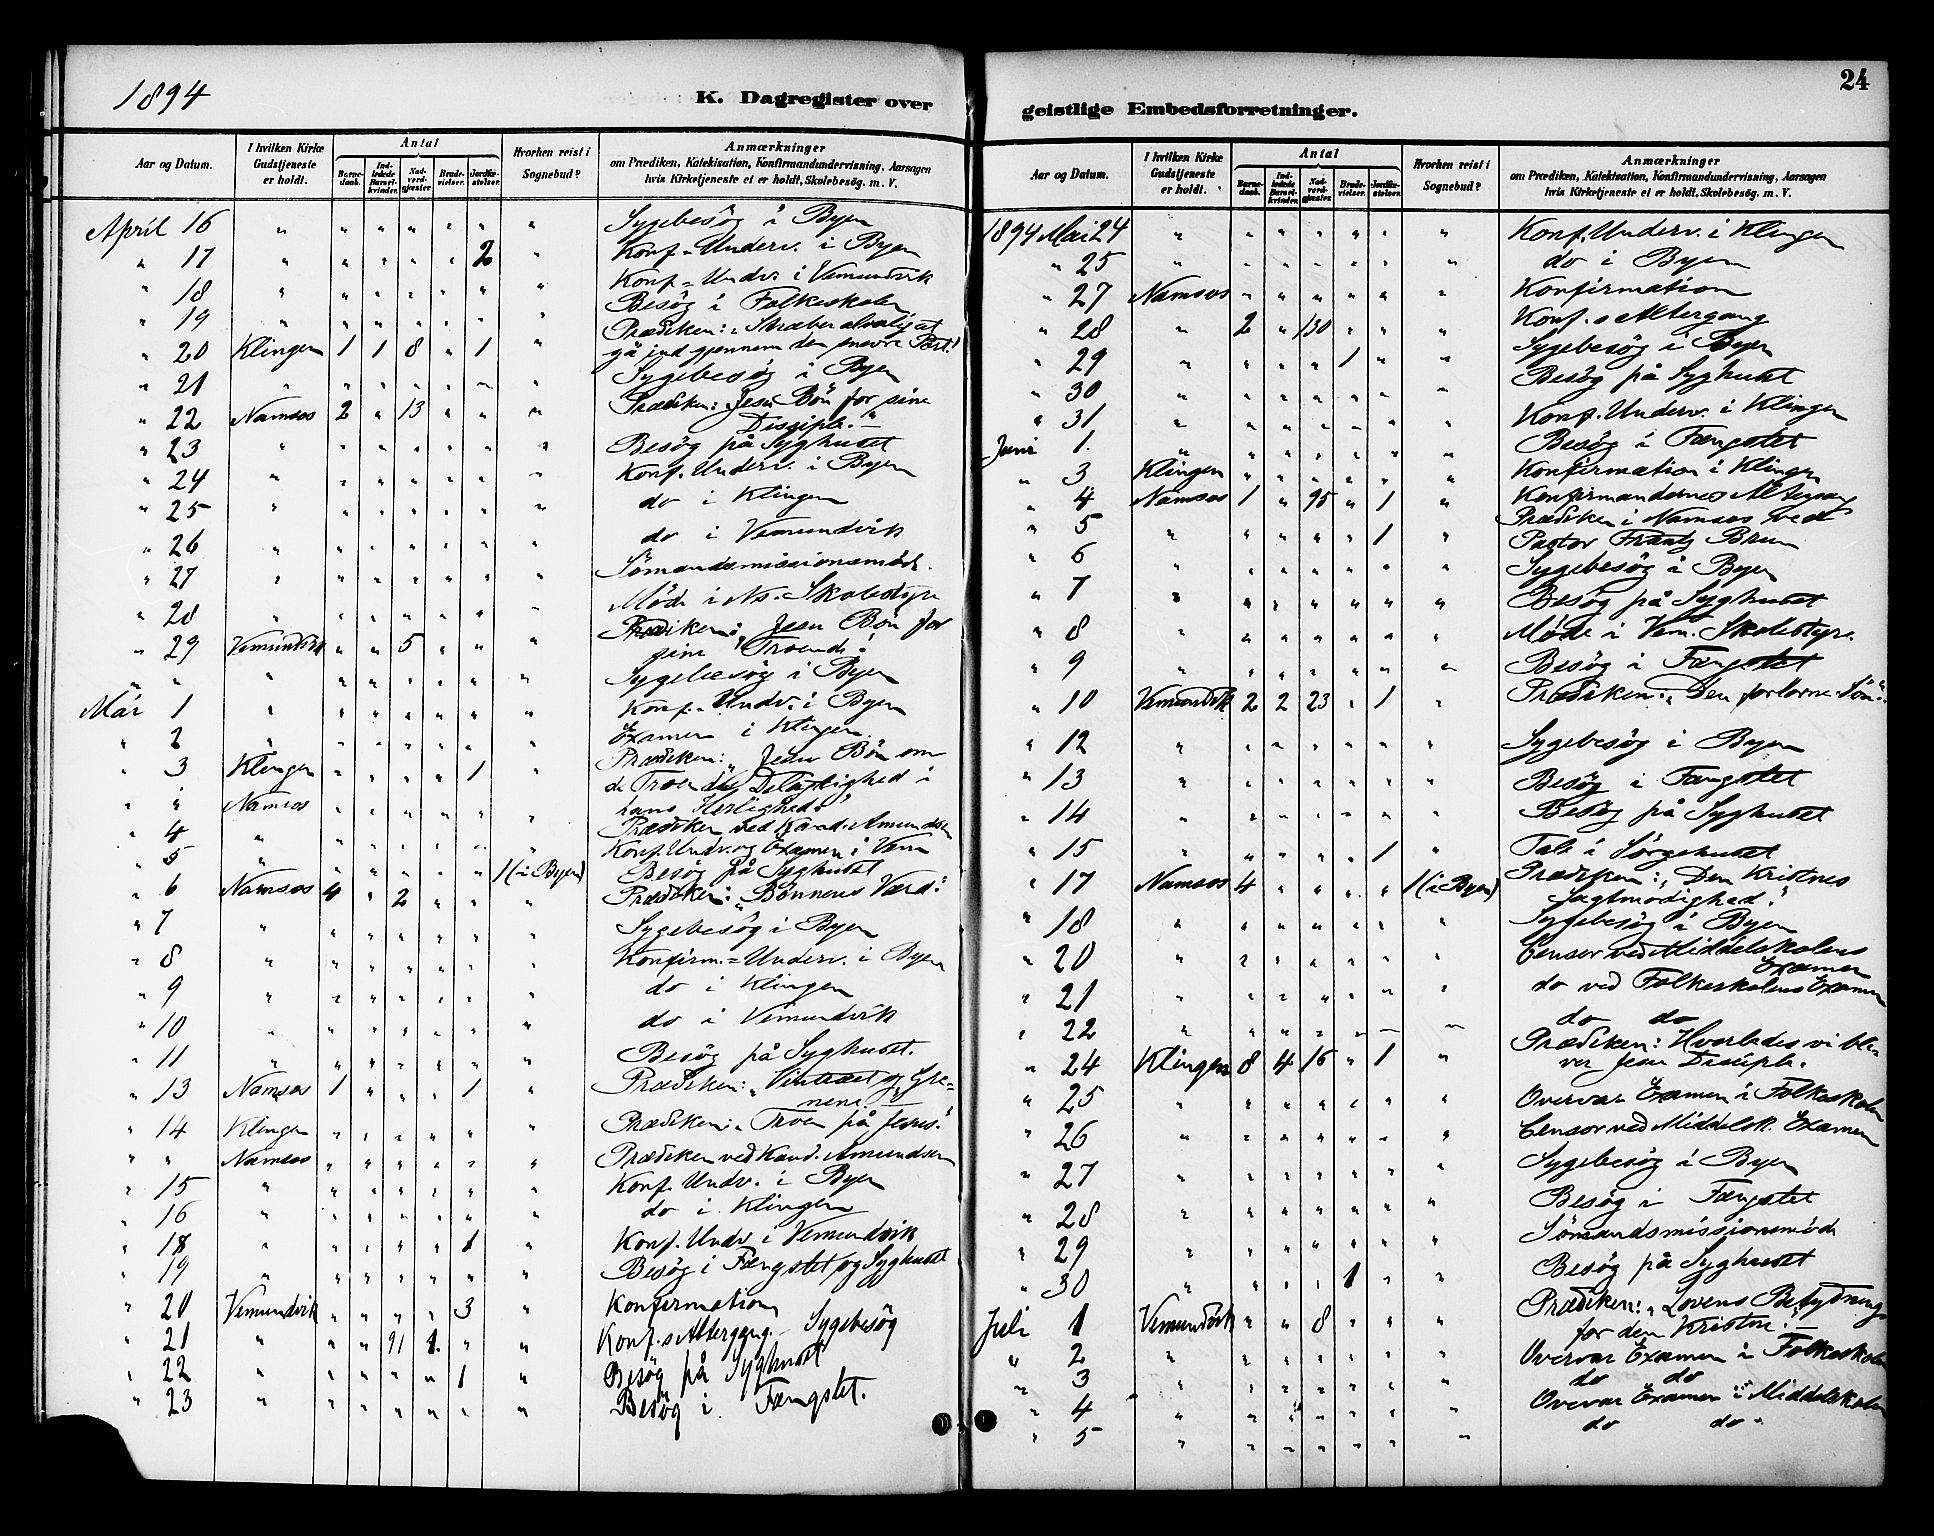 1894
K. Dagregister over
Aar og Datum.
I hvilken Kirke Gudstjeneste er holdt.
Antal
Barnedaab.
Indledede Barselkvinder.
Nadverdgjester
Brudevielser.
Jordfæstelser.
Hvorhen reist i Sognebud?
Anmærkninger
om Prædiken, Katekisation, Konfirmandundervisning, Aarsagen
hvis Kirketjeneste ei er holdt, Skolebesøg. m. V.
April 16 " " " " " " " Sygebesög i Byen
" 17 " " " " " 2 " Konf-Underv. i Byen
" 18 " " " " " " " Konf-Undv. i Vemundvik
" 19 " " " " " " " Besög i Folkeskolen
" 20 Klingen 1 1 8 " 1 " Prædiken: "Stræber alvorlig at
gå ind gjennem den snevre Port!
" 21 " " " " " " " Sygebesög i Byen
" 22 Namsos 2 " 13 " " " Prædiken: Jesu Bön for sine
Discipler."
" 23 " " " " " " " Besög på Syghuset
" 24 " " " " " " " Konf. Underv. i Byen
" 25 " " " " " " " do i Klingen
" 26 " " " " " " " do i Vemundvik
" 27 " " " " " " " Sömandsmissionsmöde.
" 28 " " " " " " " Möde i Ns. Skolestyre
" 29 Vemundvik " " 5 " " " Prædiken: "Jesu Bön for
sine Troende."
" " " " " " " " " Sygebesög i Byen
Mai 1 " " " " " " " Konf-Undv. i Byen
" 2 " " " " " " " Examen i Klingen
" 3 Klingen " " " " 1 " Prædiken: "Jesu Bön om
de Troendes Delagtighed i
hans Herlighed."
" " Namsos " " " " " " Prædiken ved Kand. Amundsen
" 4 " " " " " " " Konf. Undv. og Examen i Vem
" 5 " " " " " " 1 (i Byen) Besög på Syghuset
" 6 Namsos 4 " 2 " " " Prædiken: "Bönnens Værd."
" 7 " " " " " " " Sygebesög i Byen
" 8 " " " " " " " Konfirm.-Underv. i Byen
" 9 " " " " " " " do i Klingen
" 10 " " " " " " " do i Vemundvik
" 11 " " " " " " " Besög på Syghuset.
" 13 Namsos 1 " " " 1 " Prædiken: "Vintræet og Gre-
nene"
" 14 Klingen " " " " " " Prædiken: "Troen på Jesus."
" " Namsos " " " " " " Prædiken ved Kand. Amundsen
" 15 " " " " " " " Konf. Undv. i Byen
" 16 " " " " " " " do i Klingen
" 18 " " " " " 1 " Konf. Undv. i Vemundvik
" 19 " " " " " " " Besög i Fængslet og Syghuset
" 20 Vemundvik " " " " 3 " Konfirmation
" 21 " " " 91 1. " " Konf.s Altergang. - Sygebesög
" 22 " " " " " 1 " Besög på Syghuset
" 23 " " " " " " " Besög i Fængslet.
24
geistlige Embedsforretninger.
Aar og Datum.
I hvilken Kirke Gudstjeneste er holdt.
Antal
Barnedaab.
Indledede Barselkvinder.
Nadverdgjester
Brudevielser.
Jordfæstelser.
Hvorhen reist i Sognebud?
Anmærkninger
om Prædiken, Katekisation, Konfirmandundervisning, Aarsagen
hvis Kirketjeneste ei er holdt, Skolebesøg. m. V.
1894 Mai 24 " " " " " " " Konf. Underv. i Klingen
" 25 " " " " " " " do i Byen
" 27 Namsos " " " " " " Konfirmation
" 28 " 2 " 130 " " " Konf.s Altergang
" 29 " " " " 1 " " Sygebesög i Byen
" 30 " " " " " " " Besög på Syghuset
" 31 " " " " " " " Konf. Underv. i Klingen
Juni 1. " " " " " " " Besög i Fængslet
" 3 Klingen " " " " " " Konfirmation i Klingen
" 4 Namsos 1 " 95 " 1 " Konfirmandernes Altergang
Prædiken i Namsos ved
Pastor Frantz Brun
" 5 " " " " " 1 "
" 6 " " " " " " " Sygebesög i Byen
" 7 " " " " " " " Besög på Syghuset
" 8 " " " " " " " Möde i Vem. Skolestyre.
" 9 " " " " " " " Besög i Fængslet
" 10 Vemundvik 2 2 23 " 1 " Prædiken: "Den forlorne Sön."
" 12 " " " " " " " Sygebesög i Byen
" 13 " " " " " " " Besög i Fængslet
" 14 " " " " " " " Besög på Syghuset
" 15 " " " " " 1 " Tale i Sörgehuset
" 17 Namsos 4 " " " " 1 (i Byen) Prædiken: "Den Kristnes
Sagtmodighed."
" 18 " " " " " " " Sygebesög i Byen
" 20 " " " " " " " Censor ved Middelskolens
Examen
" 21 " " " " " " " do ved Folkeskolens Examen
" 22 " " " " " " " do do
" 24 Klingen 8 4 16 " 1 " Prædiken: Hvorledes vi bli-
ver Jesu Disciple.
" 25 " " " " " " " Overvar Examen i Folkeskolen
" 26 " " " " " " " Censor ved Middelsk. Examen
" 27 " " " " " " " Sygebesög i Byen
" 28 " " " " " " " Besög i Fængslet
" 29 " " " " " " " Sömandsmissionsmöde
" 30 " " " " 1 " " Besög på Syghuset
Juli 1 Vemundvik " " 8 " " " Prædiken: "Lovens Betydning
for den Kristne."
" 2 " " " " " " " Overvar Examen i Folkeskolen
" 3 " " " " " " " do do
" 4 " " " " " " " Overvar Examen i Middelskolen
" 5 " " " " " " " do do "